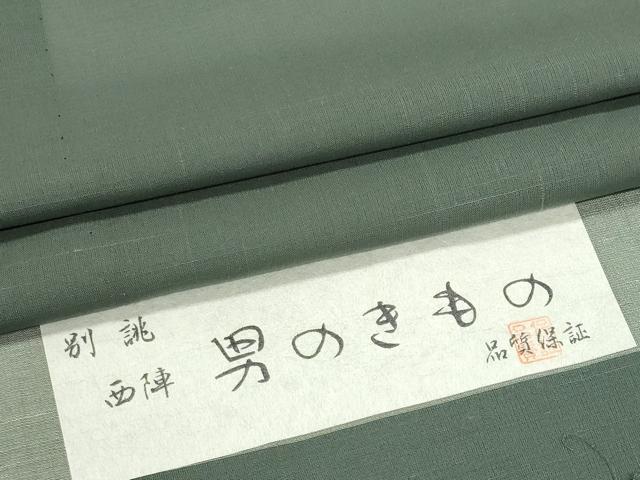 別誂
西陣
男のきもの
品質保証